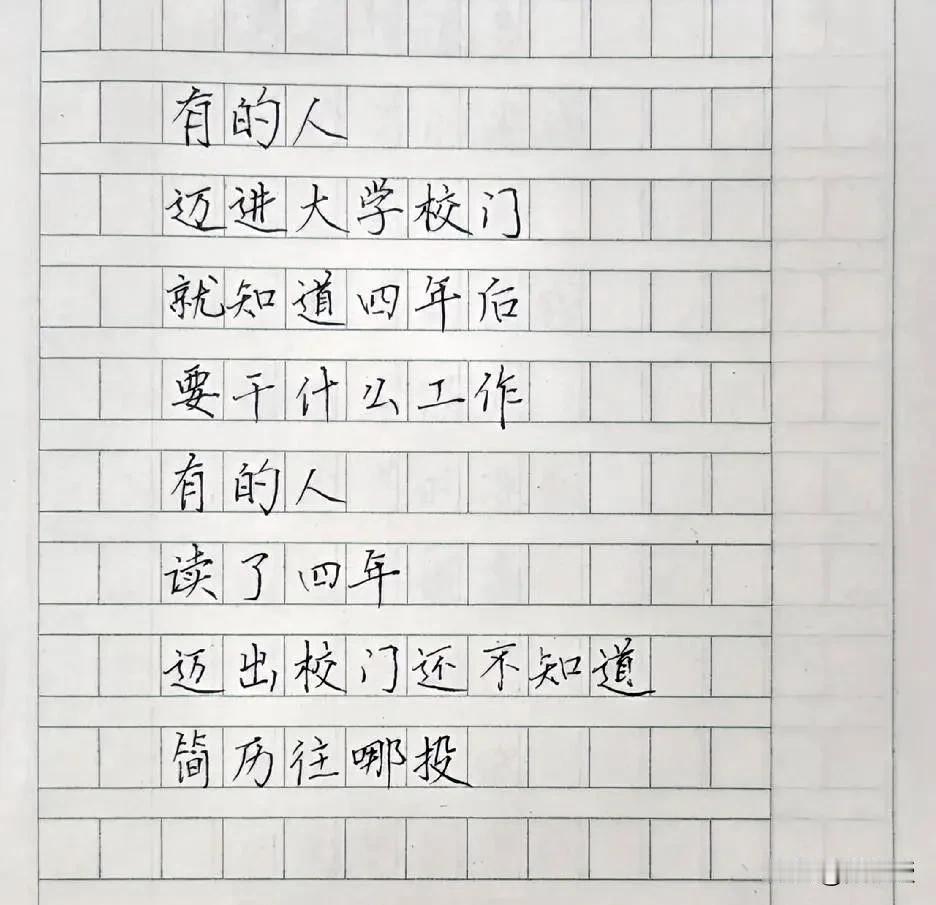 有的人
迈进大学校门
就知道四年后
要干什么工作
有的人
读了四年
迈出校门还不知道
简历往哪投